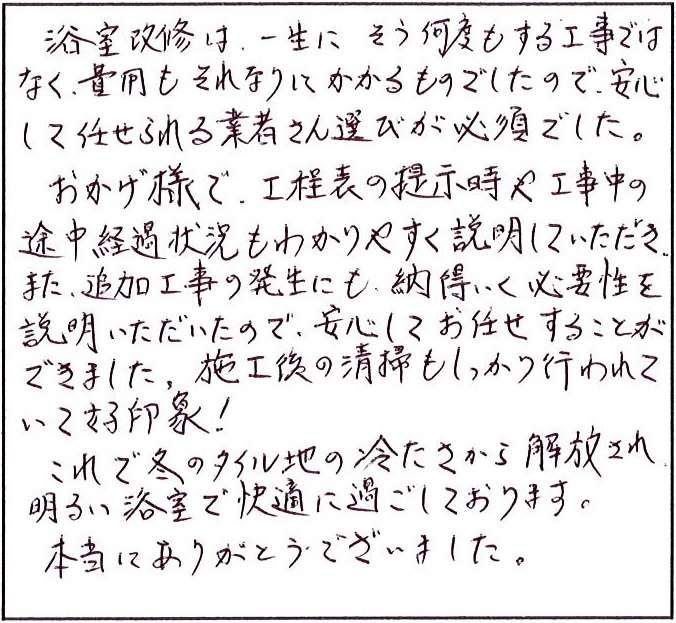 浴室改修は、一生に そう何度もする工事では
なく、費用も それなりに かかるものでしたので、安心
して任せられる業者さん選びが必須でした。
おかげ様で、工程表の提示時や 工事中の
途中経過状況もわかりやすく説明していただき、
また、追加工事の発生にも、納得いく必要性を
説明いただいたので、安心して お任せすることが
できました。施工後の清掃もしっかり行われて
いて好印象！
これで冬のタイル地の冷たさから 解放され、
明るい浴室で快適に過ごしております。
本当にありがとうございました。